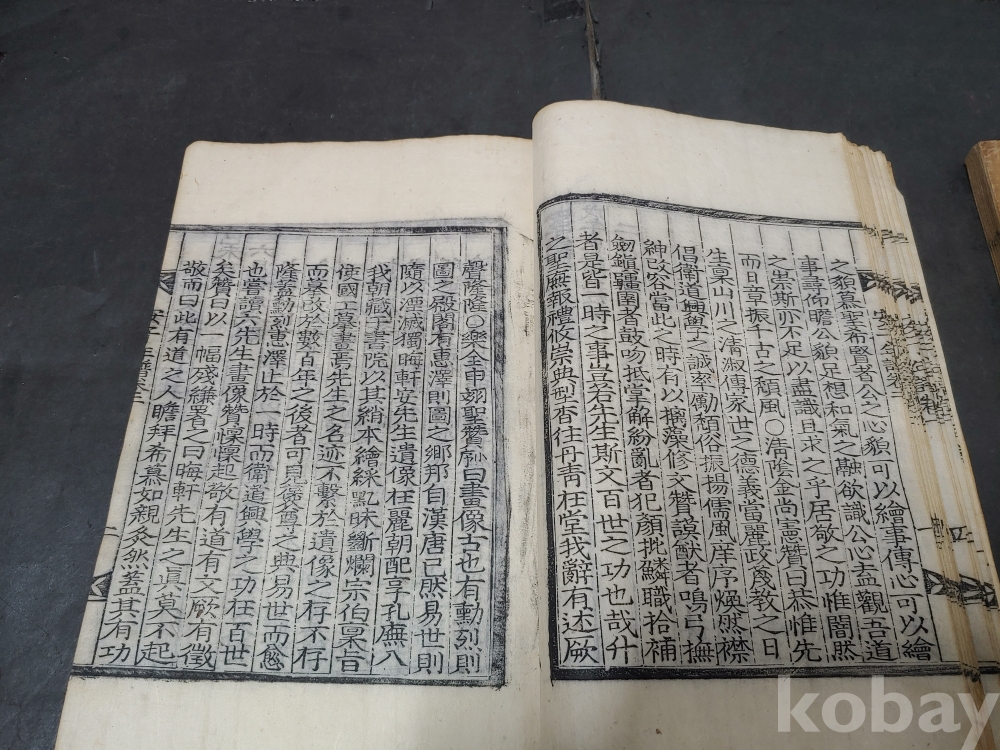 之貌慕聖希賢者公之心貌可以繪事傳心可以繪
事尋仰瞻公貌足想和氣之融欲識公心盍觀吾道
之崇斯亦不足以盡識且求之乎居敬之功惟闇然
而日章振千古之頹風○淸陰金尚憲贊曰恭惟先
生禀山川之淸淑傳家世之德義當麗政茂教之日
倡衛道興學之誠牽勵頹俗振揚儒風庠序煥然襟
紳改容當此之時有以摛藻修文贊謨猷者鳴弓撫
劒鎭疆圉者鼓吻抵掌解紛亂者犯顔批鱗職拾補
者是皆一時之事豈若先生斯文百世之功也哉升
之聖廡報禮攸崇典型杳往丹靑在堂我辭有述厥
聲隆隆○樂全申翊聖贊序曰畫像古也有勳烈則
圖之殿閣有惠澤則圖之鄉邦自漢唐已然易世則
隨以湮滅獨晦軒安先生遺像在麗朝配享孔廡入
我朝藏于書院以其綃本繪綵㸃昧斷爛宗伯禀旨
使國工摹書焉先生之名迹不繫於遺像之存不存
而摹改於數百年之後者可見褒尊之典易世而愈
隆蓋勳烈惠澤止於一時而衛道興學之功在百世
也嘗讀六先生畫像贊懍懍起敬有道有文厥有徵
矣贊曰以一幅殘縑署之曰晦軒先生之眞莫不起
敬而曰此有道之人瞻拜希慕如親炙然蓋其有功
kobay